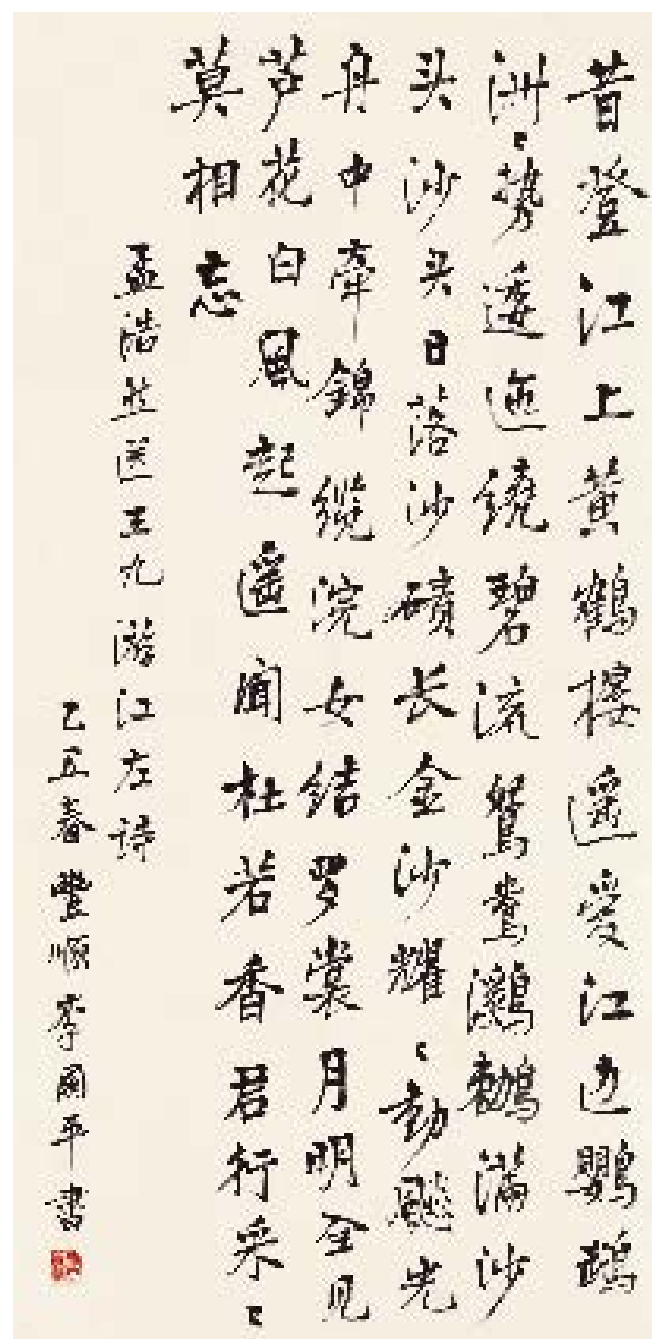 昔登江上黄鶴樓遥爱江边鸚鵡
洲々势逶迤繞碧流鴛鴦鸂鶒满沙
头沙头日落沙磧长金沙耀々動飈光
舟中牵錦纜浣女结罗裳月明全見
芦花白風起遥聞杜若香君行采々
莫相忘
孟浩然送王九游江左诗
己丑春豐順李國平書